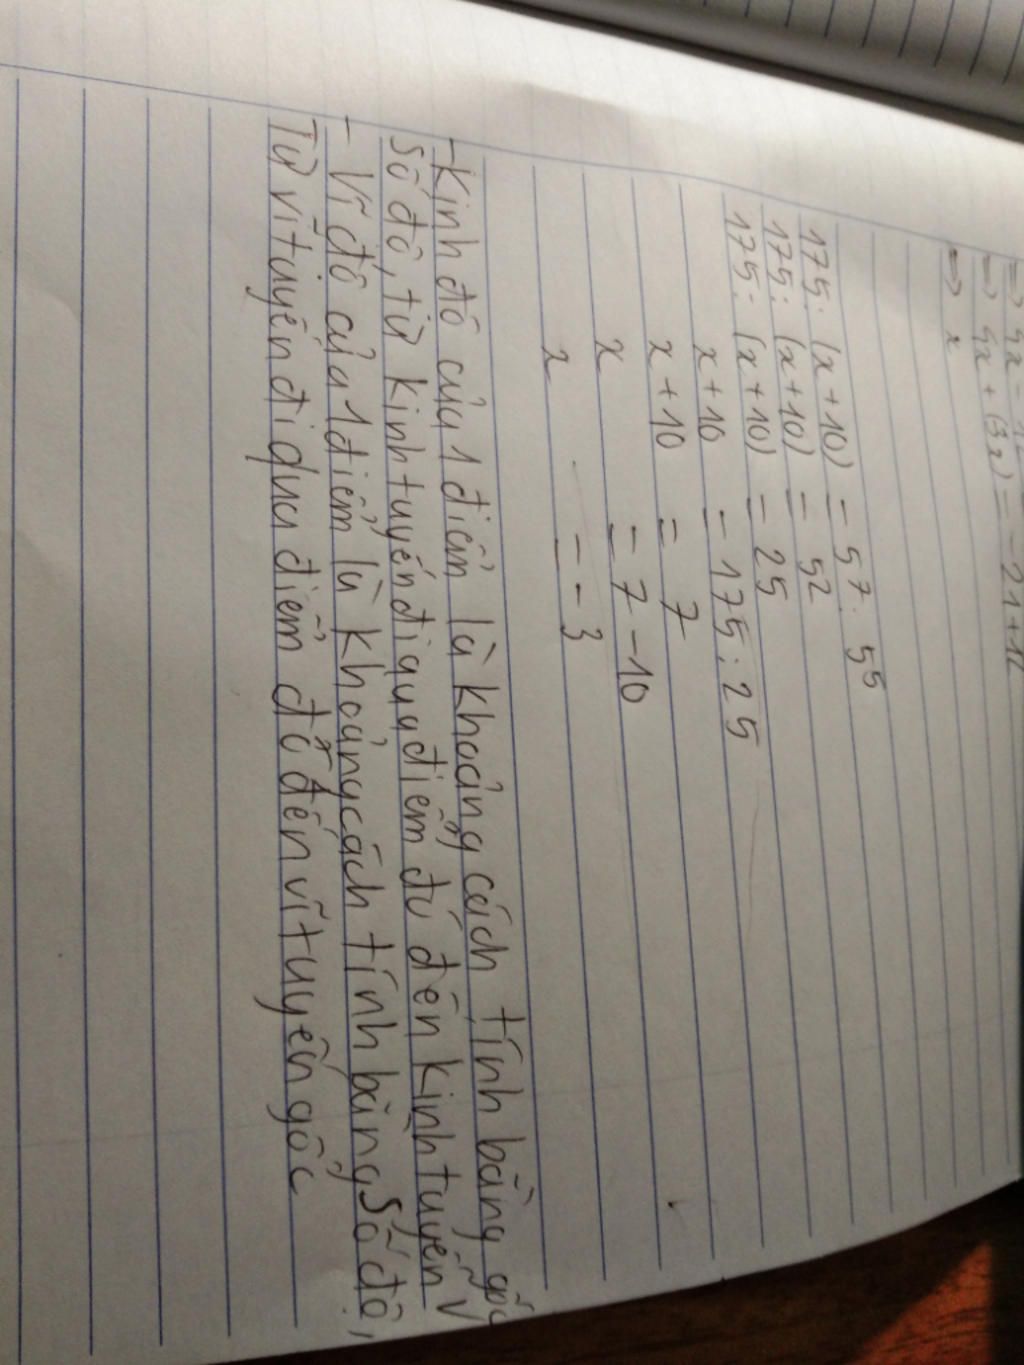 => 4x - 12
=> 4x + (32) = -21+12
=> x
175 : (x+10) = 5⁷ : 5⁵
175 : (x+10) = 5²
175 : (x+10) = 25
x+10 = 175 : 25
x+10 = 7
x = 7 - 10
x = -3
- Kinh độ của 1 điểm là khoảng cách tính bằng gốc
số độ, từ kinh tuyến đi qua điểm đó đến kinh tuyến
- Vĩ độ của 1 điểm là khoảng cách tính bằng số độ,
Từ vĩ tuyến đi qua điểm đó đến vĩ tuyến gốc